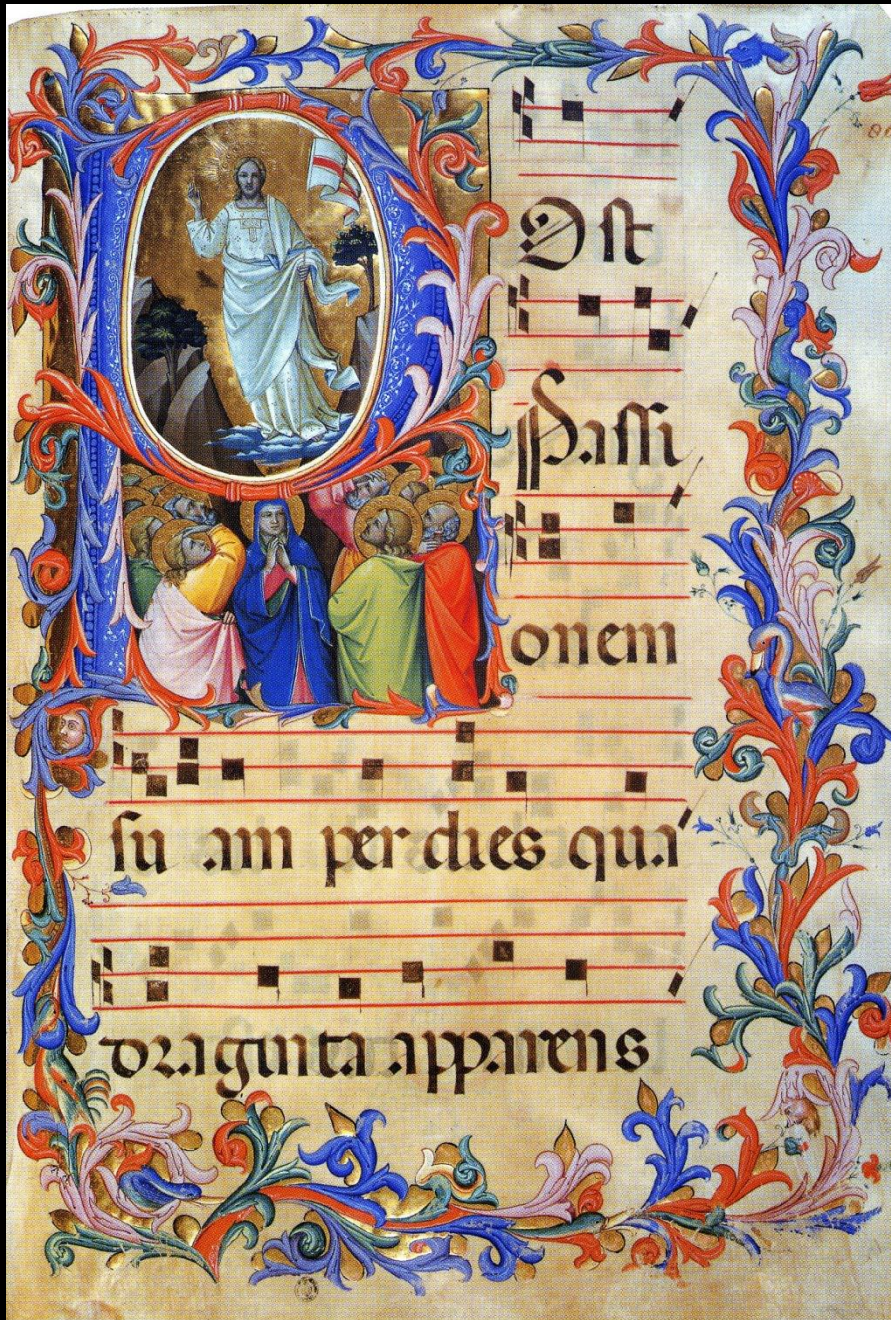 POst
Passi
onem
su am per dies qua
draginta apparens